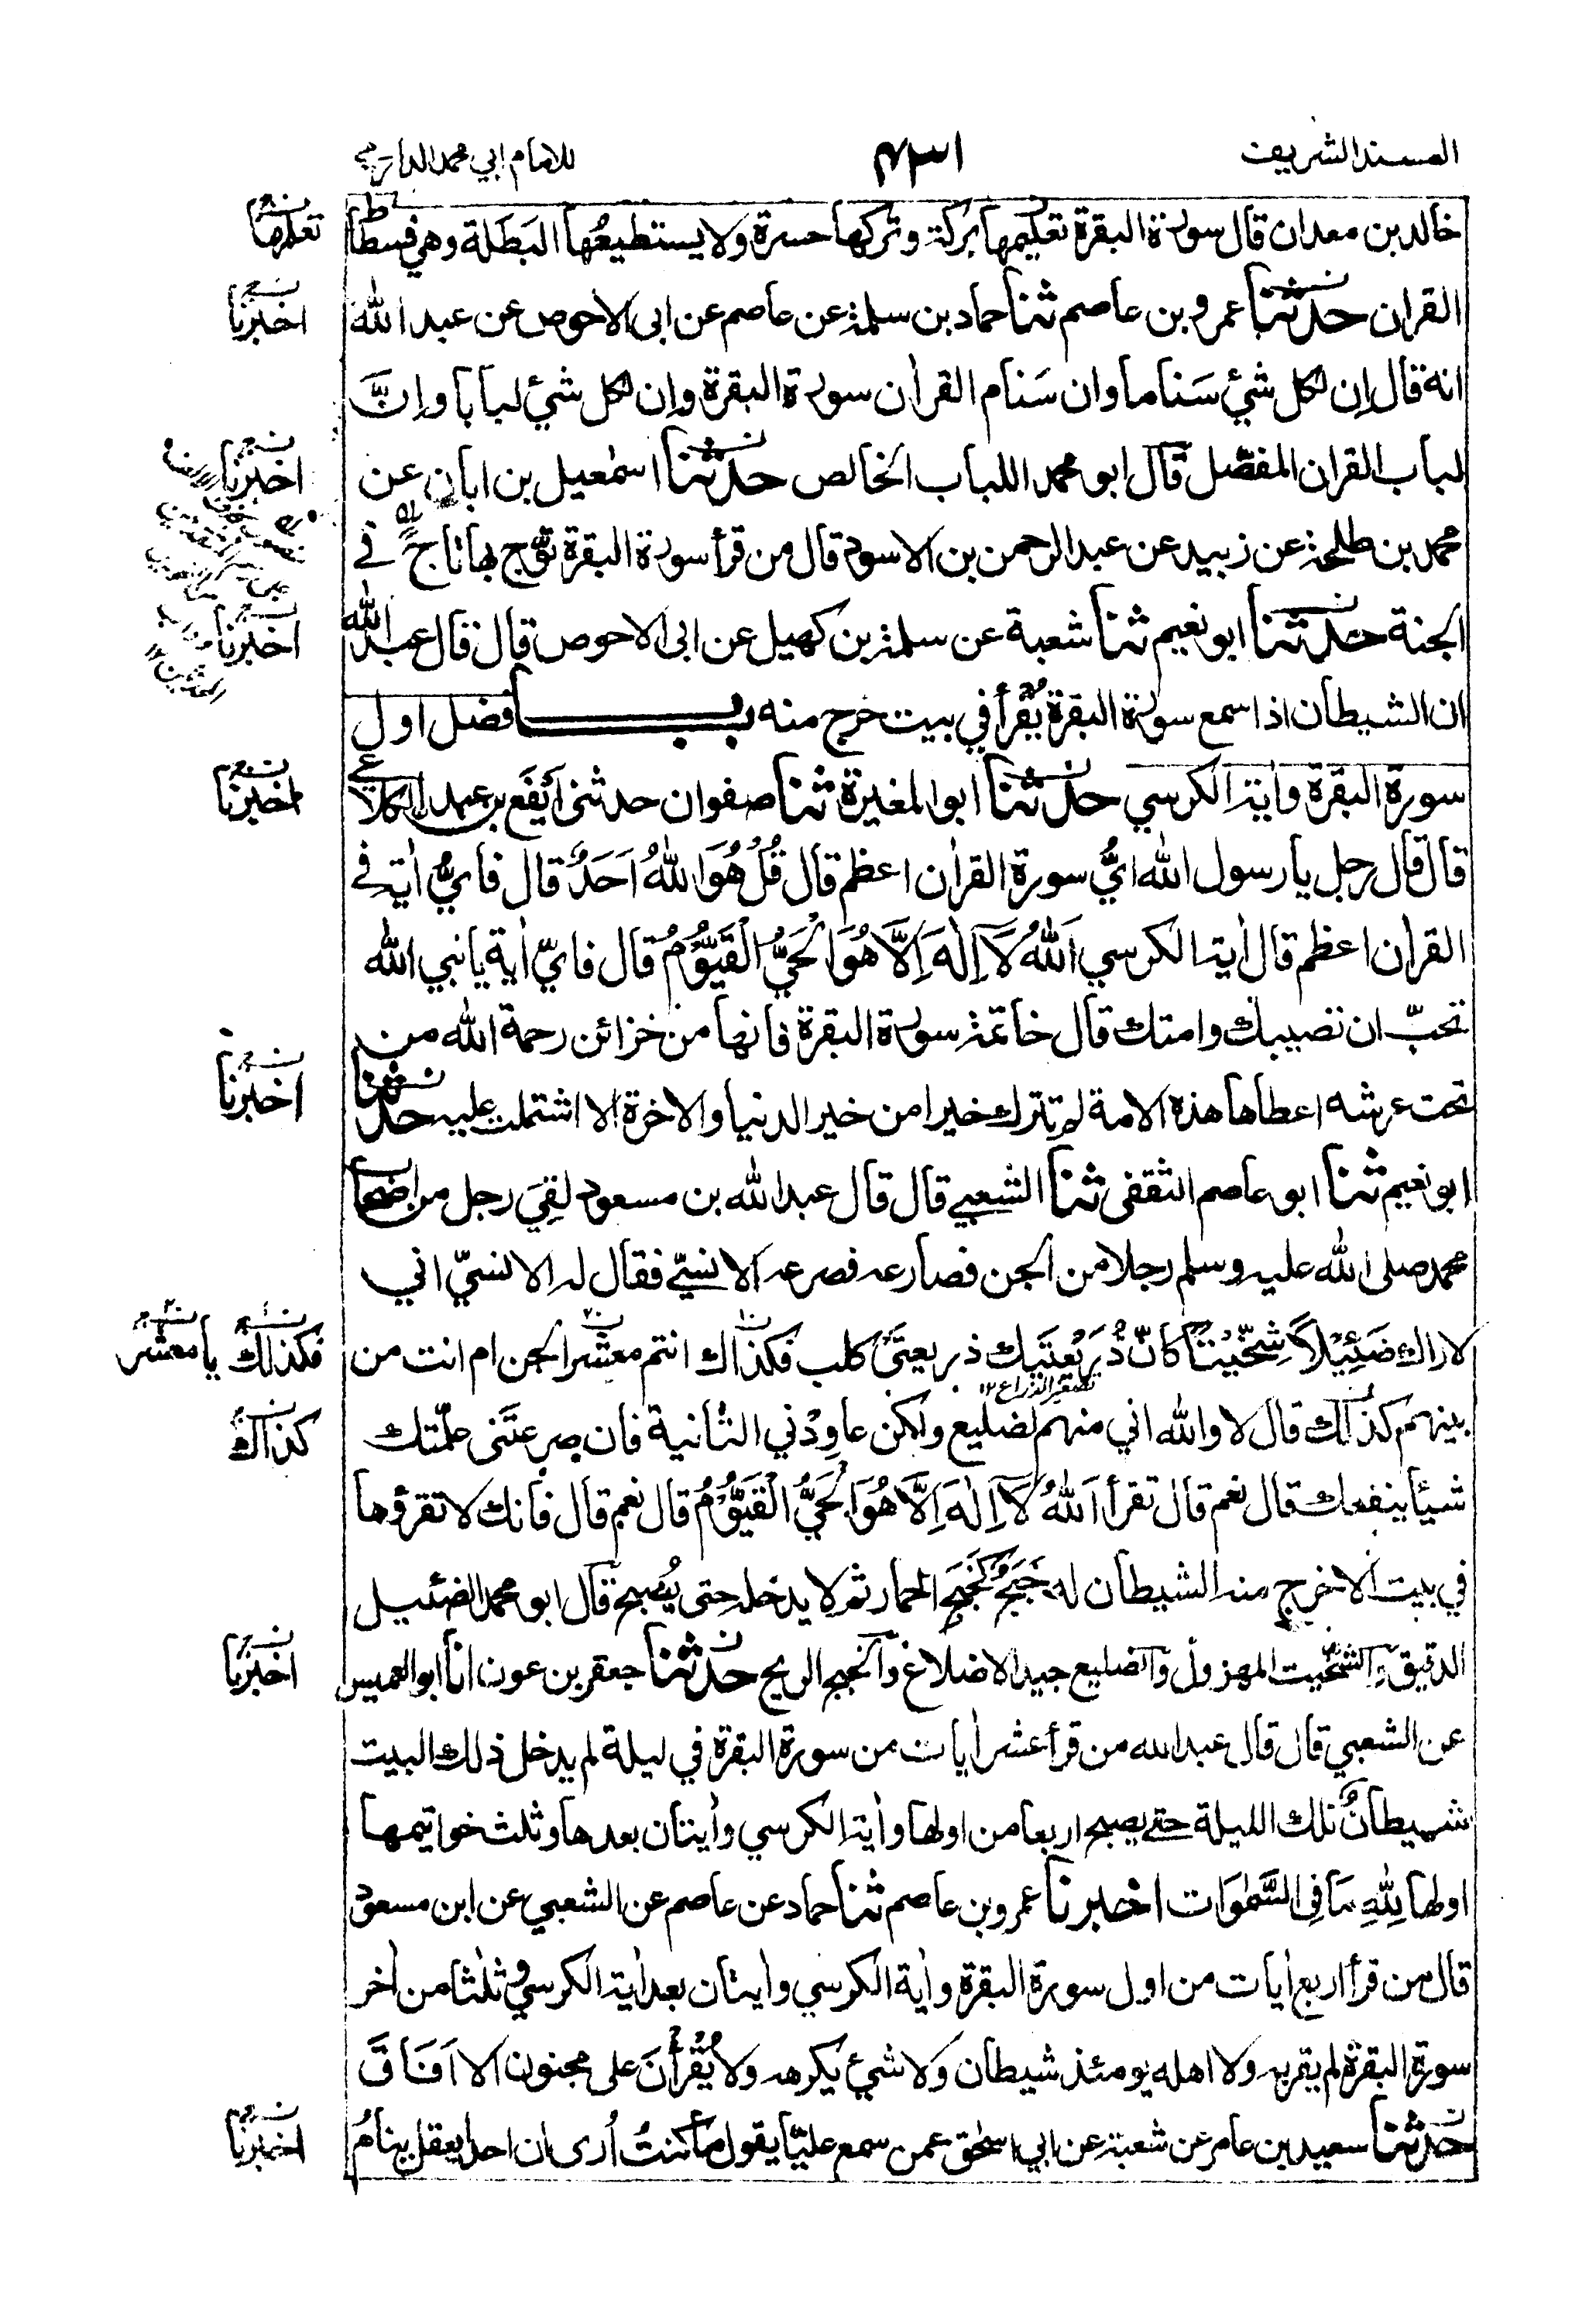 المسند الشريف ٤٣١ للامام ابي محمد الدارمي
خالد بن معدان قال سورة البقرة تعليمها بركة وتركها حسرة ولا يستطيعها البَطَلة وهي فسطاط
تعلمها
القران حدثنا عمرو بن عاصم ثنا حماد بن سلمة عن عاصم عن ابى الاحوص عن عبد الله
اخبرنا
انه قال إن لكل شئ سَناما وان سَنام القراٰن سورة البقرة وإن لكل شئ لبابا وإنَّ
لباب القران المفصّل قال ابو محمد اللباب الخالص حدثنا اسمٰعيل بن ابان عن
اخبرنا
محمد بن طلحة عن زبيد عن عبد الرحمن بن الاسود قال من قرأ سورة البقرة تُوّج بها تاج في
الجنة حدثنا ابو نعيم ثنا شعبة عن سلمة بن كهيل عن ابى الاحوص قال قال عبد الله
اخبرنا
ان الشيطان اذا سمع سورة البقرة يُقرأ في بيت خرج منه باب فضل اول
سورة البقرة واٰية الكرسي حدثنا ابو المغيرة ثنا صفوان حدثنى أيفَع بن عبد الكلاعي
اخبرنا
قال قال رجل يا رسول الله ايُّ سورة القراٰن اعظم قال قُلْ هُوَ اللهُ اَحَدٌ قال فايُّ اٰية في
القراٰن اعظم قال اٰية الكرسي اَللهُ لَآ اِلٰهَ اِلَّا هُوَ الْحَيُّ الْقَيُّوْمُ قال فايّ اٰية يا نبي الله
تحبّ ان تصيبك وامتك قال خاتمة سورة البقرة فانها من خزائن رحمة الله من
تحت عرشه اعطاها هذه الامة لم تترك خيرا من خير الدنيا والاخرة الا اشتملت عليه حدثنا
اخبرنا
ابو نعيم ثنا ابو عاصم الثقفى ثنا الشعبي قال قال عبد الله بن مسعود لقِيَ رجل من اصحاب
محمد صلى الله عليه وسلم رجلا من الجن فصارعه فصرعه الانسيّ فقال له الانسيّ اني
لاراك ضَئِيْلًا شِخِّيْتًا كانّ ذُرَيْعَتَيك ذريعتَيْ كلب فكذاك انتم معشر الجن ام انت من
فكذلك يا معشر
تصغير الذراع ١٢
بينهم كذلك قال لا والله اني منهم لضليع ولكن عاوِدْني الثانية فان صرعتَنى علّمتك
كذاك
شيئا ينفعك قال نعم قال تقرأ اَللهُ لَآ اِلٰهَ اِلَّا هُوَ الْحَيُّ الْقَيُّوْمُ قال نعم قال فانك لا تقرؤها
في بيت الا خرج منه الشيطان له خَبَجٌ كخَبَجِ الحمار ثم لا يدخله حتى يُصبح قال ابو محمد الضئيل
الدقيق والشخيت المهزول والضليع جيد الاضلاع والخبج الريح حدثنا جعفر بن عون انا ابو العميس
اخبرنا
عن الشعبي قال قال عبد الله من قرأ عشر اٰيات من سورة البقرة في ليلة لم يدخل ذلك البيت
شيطانٌ تلك الليلة حتى يصبح اربعا من اولها واٰية الكرسي واٰيتان بعدها وثلث خواتيمها
اولها لِلّٰهِ مَا فِى السَّمٰوَات اخبرنا عمرو بن عاصم ثنا حماد عن عاصم عن الشعبي عن ابن مسعود
قال من قرأ اربع اٰيات من اول سورة البقرة واٰية الكرسي واٰيتان بعد اٰية الكرسي وثلٰثا من اٰخر
سورة البقرة لم يقربه ولا اهله يومئذ شيطان ولا شئ يكرهه ولا يُقْرأنَ على مجنون الا اَفَاقَ
حدثنا سعيد بن عامر عن شعبة عن ابي اسحٰق عمن سمع عليّا يقول ما كنتُ اُرى ان احدا يعقل ينامُ
اخبرنا